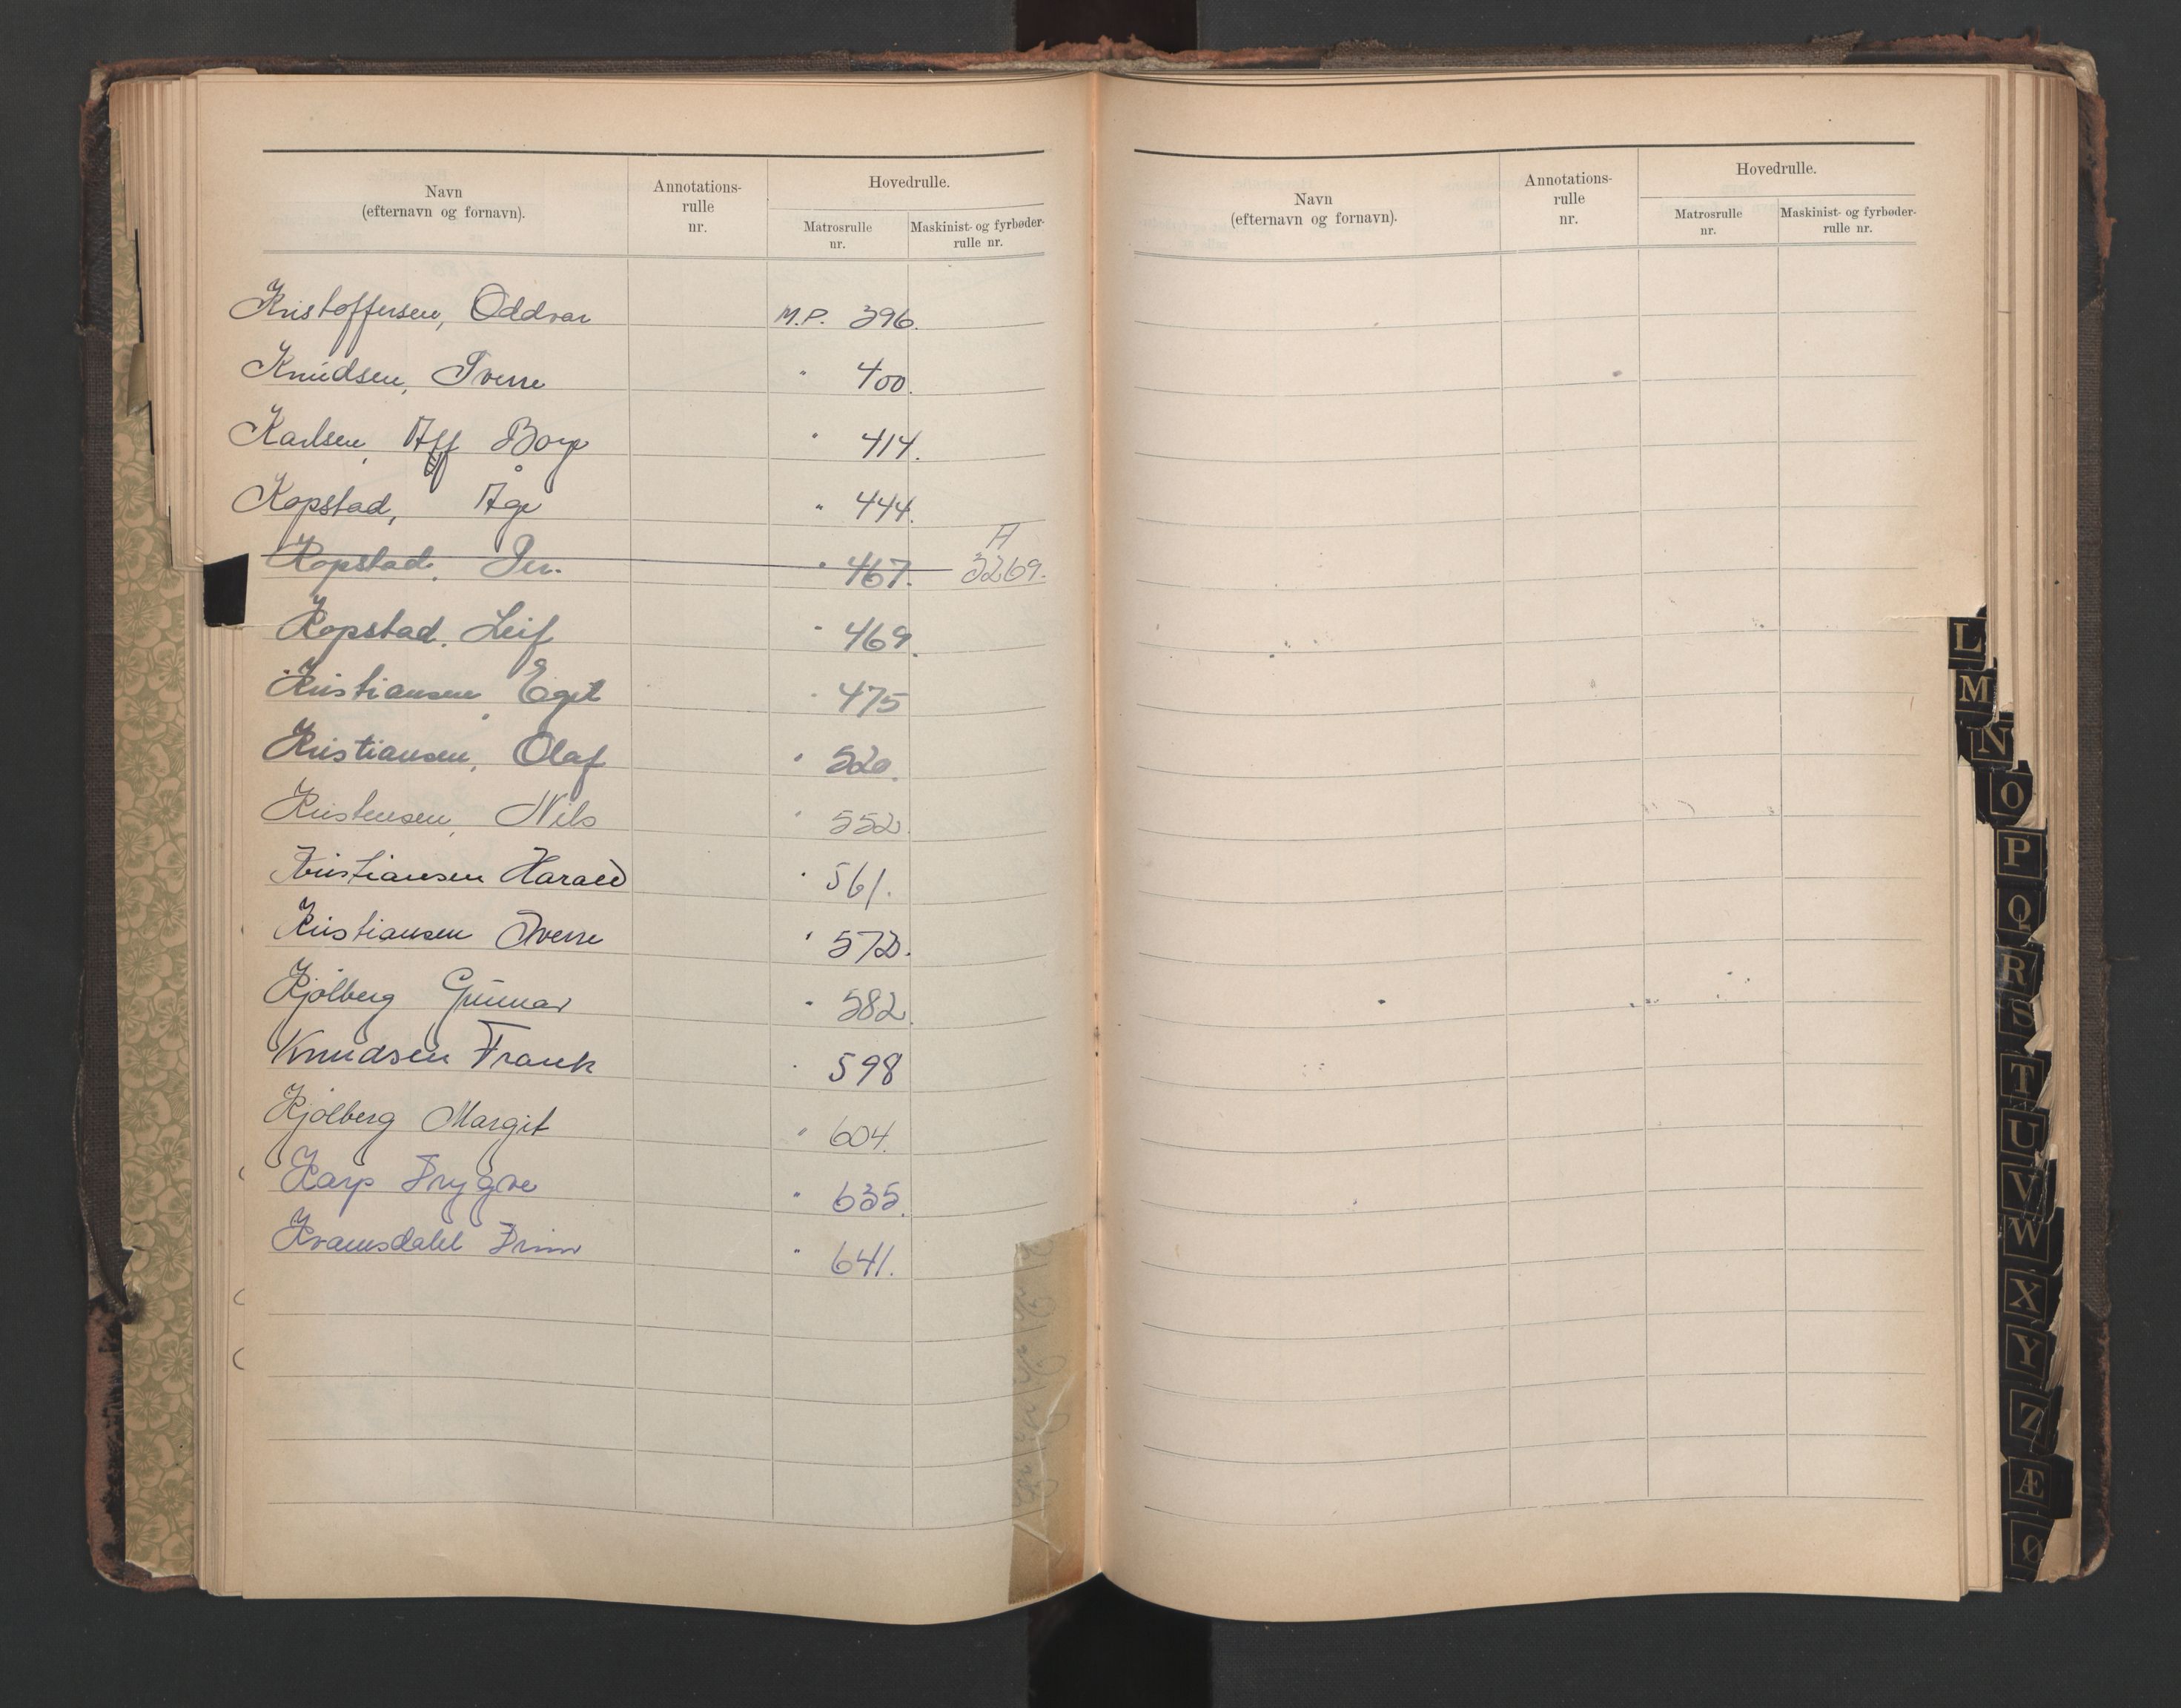 Navn
(efternavn og fornavn).
Annotations-
rulle
nr.
Hovedrulle.
Matrosrulle
nr.
Maskinist- og fyrbøder-
rulle nr.
Kristoffersen, Oddvar M.P. 396.
Knudsen, Sverre " 400.
Karlsen, Alf Borge " 414.
Kopstad, Åge " 444.
Kopstad, Per. " 467. A 3269.
Kopstad. Leif " 469.
Kristiansen, Egil " 475
Kristiansen, Olaf " 520.
Kristensen, Nils " 552.
Kristiansen Harald " 561.
Kristiansen Sverre " 572.
Kjølberg Gunnar " 582.
Knudsen Frank " 598
Kjølberg Margit " 604.
Karp Trygve " 635.
Kramsdahl Finn " 641.
Navn
(efternavn og fornavn).
Annotations-
rulle
nr.
Hovedrulle.
Matrosrulle
nr.
Maskinist- og fyrbøder-
rulle nr.
L
M
N
O
P
Q
R
S
T
U
V
W
X
Y
Z
Æ
Ø